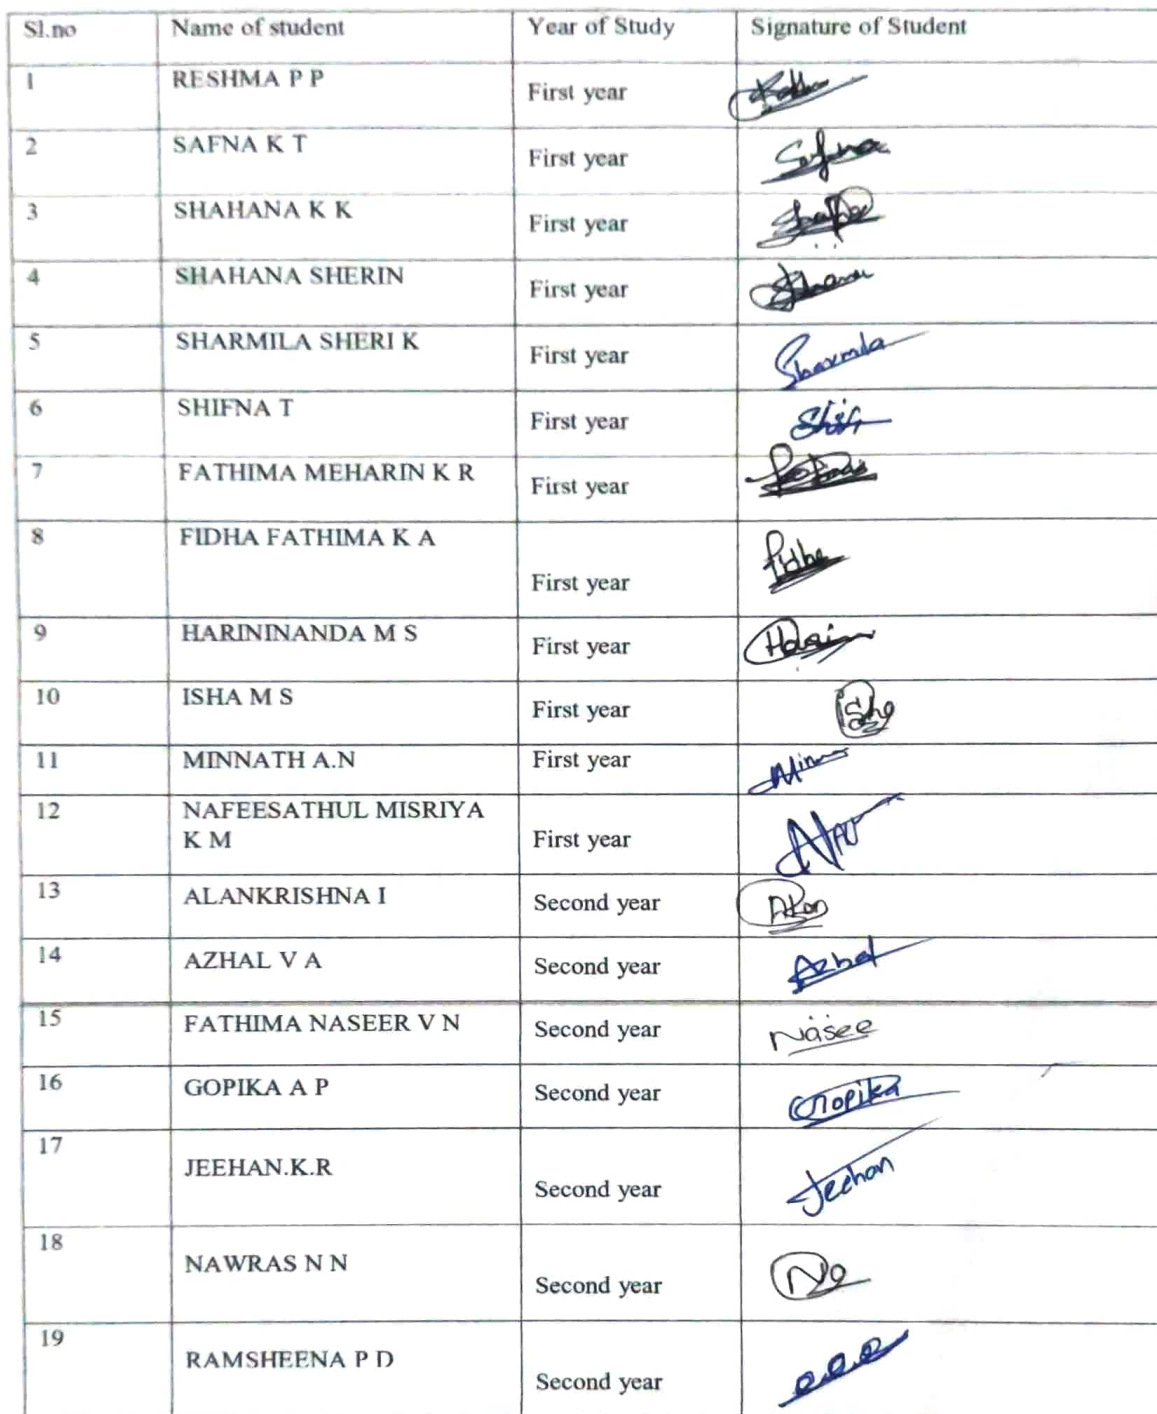 Sl.no Name of student Year of Study Signature of Student
1 RESHMA P P First year
2 SAFNA K T First year Safna
3 SHAHANA K K First year
4 SHAHANA SHERIN First year
5 SHARMILA SHERI K First year Sharmila
6 SHIFNA T First year
7 FATHIMA MEHARIN K R First year
8 FIDHA FATHIMA K A First year Fidha
9 HARININANDA M S First year
10 ISHA M S First year
11 MINNATH A.N First year
12 NAFEESATHUL MISRIYA
K M First year
13 ALANKRISHNA I Second year
14 AZHAL V A Second year Azhal
15 FATHIMA NASEER V N Second year Nasee
16 GOPIKA A P Second year Gopika
17 JEEHAN.K.R Second year Jeehan
18 NAWRAS N N Second year
19 RAMSHEENA P D Second year